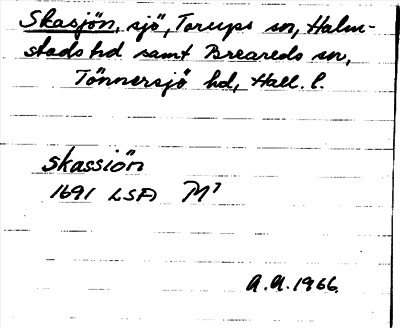 Skasjön, sjö, Torups sn, Halm-
stads hd samt Breareds sn,
Tönnersjö hd, Hall. l.
skassiön
1691 LSA M7
A.A. 1966.